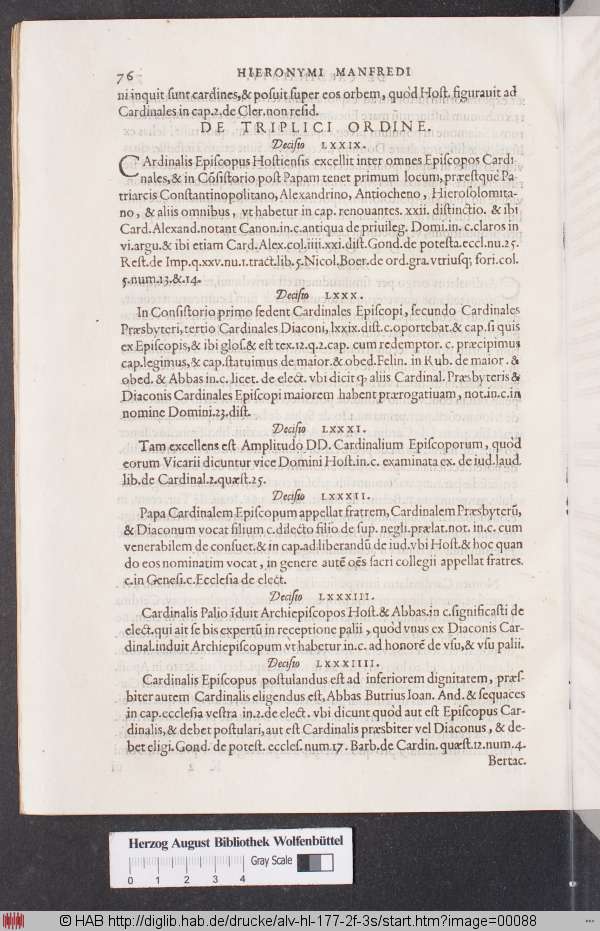 76 HIERONYMI MANFREDI
ni inquit sunt cardines,& posuit super eos orbem, quòd Host. figurauit ad
Cardinales in cap.2.de Cler.non resid.
DE TRIPLICI ORDINE.
Decisio LXXIX.
CArdinalis Episcopus Hostiensis excellit inter omnes Episcopos Cardi
nales,& in Cōsistorio post Papam tenet primum locum, præestquè Pa-
triarcis Constantinopolitano, Alexandrino, Antiocheno, Hierosolomita-
no, & aliis omnibus, vt habetur in cap. renouantes. xxii. distinctio. & ibi
Card.Alexand.notant Canon.in.c.antiqua de priuileg. Domi.in. c.claros in
vi.argu.& ibi etiam Card.Alex.col.iiii.xxi.dist.Gond.de potesta.eccl.nu.25.
Rest.de Imp.q.xxv.nu.1.tract.lib.5.Nicol.Boer.de ord.gra.vtriusq; fori.col.
5.num.13.&.14.
Decisio LXXX.
In Consistorio primo sedent Cardinales Episcopi, secundo Cardinales
Præsbyteri,tertio Cardinales Diaconi,lxxix.dist.c.oportebat.& cap.si quis
ex Episcopis,& ibi glos.& est tex.12.q.2.cap. cum redemptor. c. præcipimus
cap.legimus,& cap.statuimus de maior.& obed.Felin. in Rub. de maior. &
obed. & Abbas in.c. licet. de elect. vbi dicit q aliis Cardinal. Præsbyteris &
Diaconis Cardinales Episcopi maiorem habent prærogatiuam, not.in.c.in
nomine Domini.23.dist.
Decisio LXXXI.
Tam excellens est Amplitudo DD. Cardinalium Episcoporum, quòd
eorum Vicarii dicuntur vice Domini Host.in.c. examinata ex. de iud.laud.
lib.de Cardinal.2.quæst.25.
Decisio LXXXII.
Papa Cardinalem Episcopum appellat fratrem, Cardinalem Præsbyterū,
& Diaconum vocat filium c.dilecto filio de sup. negli.prælat.not. in.c. cum
venerabilem de consuet.& in cap.ad liberandū de iud.vbi Host.& hoc quan
do eos nominatim vocat, in genere autē oēs sacri collegii appellat fratres.
c.in Genesi.c.Ecclesia de elect.
Decisio LXXXIII.
Cardinalis Palio īduit Archiepiscopos Host.& Abbas.in c.significasti de
elect.qui ait se bis expertū in receptione palii, quòd vnus ex Diaconis Car-
dinal.induit Archiepiscopum vt habetur in.c. ad honorē de vsu,& vsu palii.
Decisio LXXXIIII.
Cardinalis Episcopus postulandus est ad inferiorem dignitatem, præs-
biter autem Cardinalis eligendus est, Abbas Butrius Ioan. And.& sequaces
in cap.ecclesia vestra in.2.de elect. vbi dicunt quòd aut est Episcopus Car-
dinalis,& debet postulari,aut est Cardinalis præsbiter vel Diaconus, & de-
bet eligi.Gond. de potest. eccles.num.17. Barb.de Cardin. quæst.12.num.4.
Bertac.
Herzog August Bibliothek Wolfenbüttel
Gray Scale
0 1 2 3 4
© HAB http://diglib.hab.de/drucke/alv-hl-177-2f-3s/start.htm?image=00088